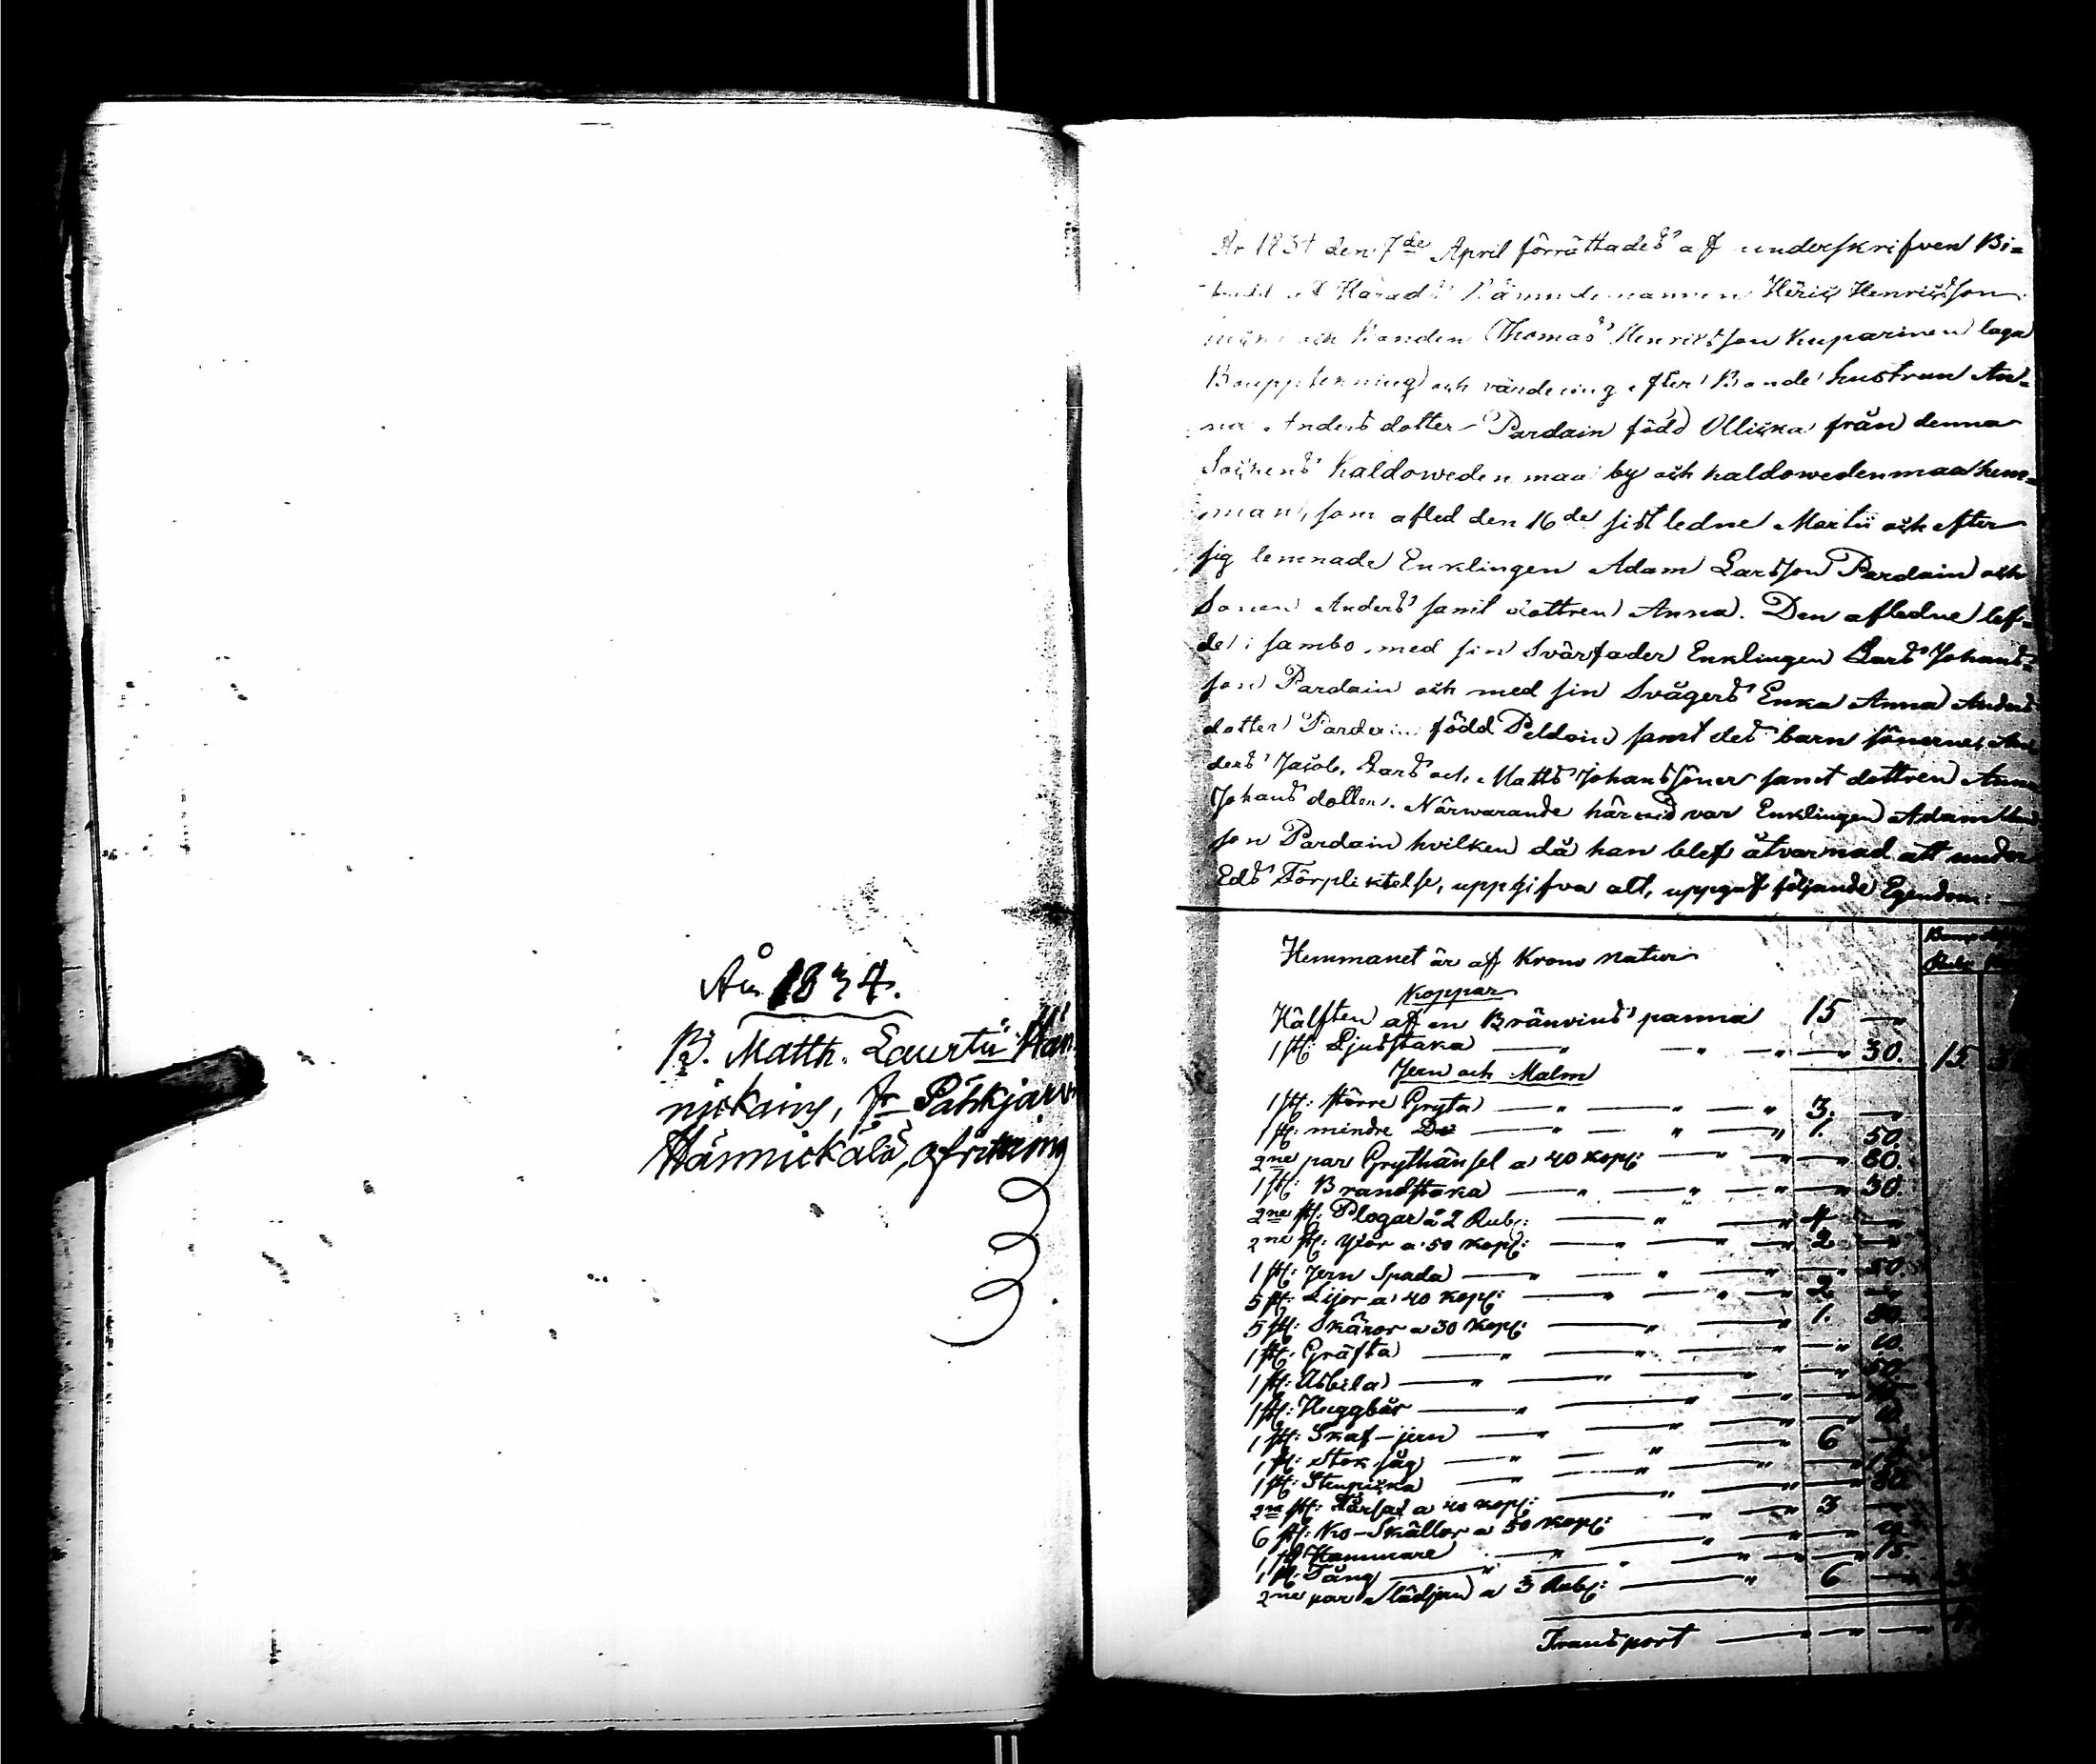 År 1834.
B. Matth. Laurtii Hän
nickäins, fr Pätskjärv
Hännickälä, afvittring
År 1834 den 7de April förrättades af underskrifven Bi-
träd af Härads Nämndemannen Henric Henricsson
och Bonden Thomas Henricsson Kuparinen laga
Bouppteckning och värdering efter Bonde hustrun An-
na Anders dotter Pardain född Ollicka från denna
Sockens Kaldowedenmaa by och Kaldowedenmaa hem-
man, som afled den 16de sistledne Martii och efter
sig lemnade Enklingen Adam Larsson Pardain och
Sonen Anders samt dottren Anna. Den afledne lef-
de i sambo med sin Svärfader Enklingen Lars Johans-
son Pardain och med sin Svägers Enka Anna Anders
dotter Pardain född Peldoin samt des barn sönerne An
ders, Jacob, Lars och Matts Johanssöner samt dottren Anna
Johans dotter. Närwarande härvid var Enklingen Adam
son Pardain hvilken då han blef åtvarnad att under
Eds Förpliktelse, uppgifva allt, uppgaf följande Egendom:
Hemmanet är af Krono natur
Koppar
Hälften af en Bränvins panna 15 —
1 st: Ljusstaka — 30. 15
Jern och Malm
1 st: större Gryta 3. —
1 st: mindre Do 1. 50.
2ne par Grythänsel a 40 kop: — 80.
1 st: Brandstaka — 30.
2ne st: Plogar a 2 Rub: 4 —
2ne st: Yxor a 50 kop: 2 —
1 st: Jern Spada — 50.
5 st: Lijor a 40 kop: 2 —
5 st: Skäror a 30 kop: 1. 50.
1 st: Gräfta
1 st: Åsbila — 50.
1 st: Huggbår
1 st: Skaf-jern
1 st: Stok såg 6 —
1 st: Stenpicka
2ne st: a 40 kop: 80.
6 st: Ko-Skällor a 50 kop: 3 —
1 st Hammare
1 st: Tång — 15.
2ne par Slädjern a 3 Rub: 6 —
Transport